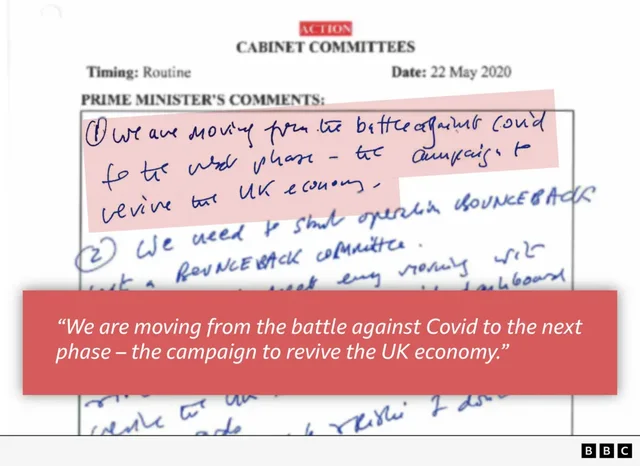 ACTION
CABINET COMMITTEES
Timing: Routine Date: 22 May 2020
PRIME MINISTER'S COMMENTS:
① We are moving from the battle against Covid
to the next phase – the campaign to
revive the UK economy.
② We need to start operation BOUNCEBACK
a BOUNCEBACK committee.
every morning with
dashboard
“We are moving from the battle against Covid to the next
phase – the campaign to revive the UK economy.”
the
I
BBC